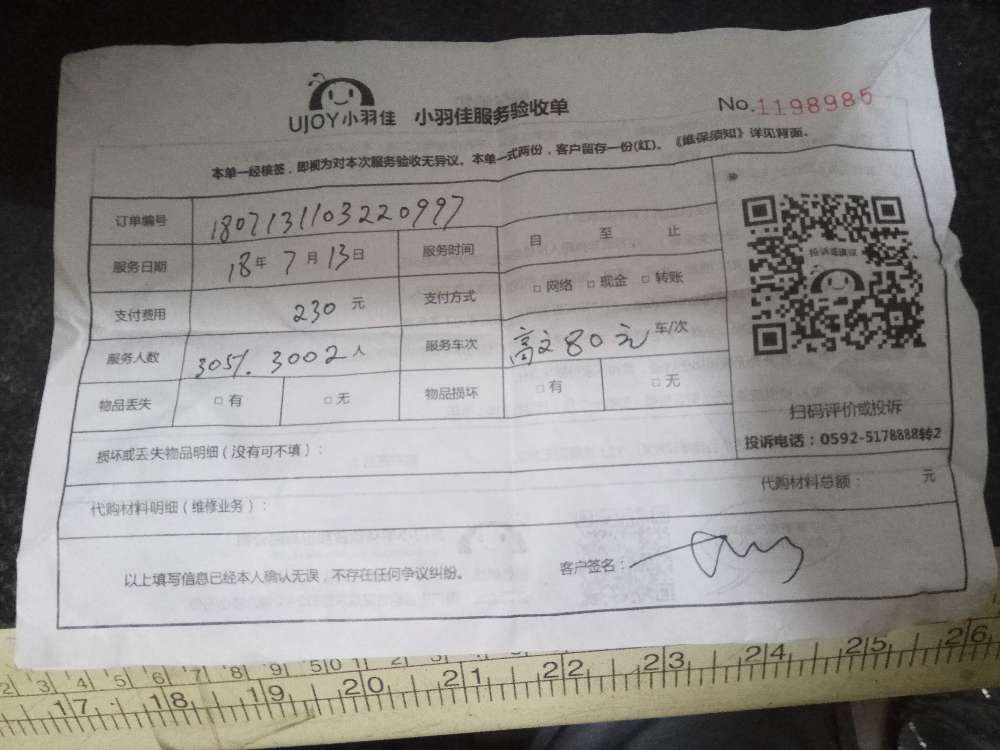 UJOY小羽佳 小羽佳服务验收单 No.1198985
本单一经核签，即视为对本次服务验收无异议。本单一式两份，客户留存一份(红)。《维保须知》详见背面。
订单编号 1807131103220997
服务日期 18年7月13日 服务时间 自 至 止
支付费用 230 元 支付方式 □网络 □现金 □转账
服务人数 3051. 3002人 服务车次 高文80元 车/次
物品丢失 □有 □无 物品损坏 □有 □无
投诉或建议
扫码评价或投诉
投诉电话：0592-5178888转2
损坏或丢失物品明细（没有可不填）：
代购材料明细（维修业务）： 代购材料总额： 元
以上填写信息已经本人确认无误，不存在任何争议纠纷。 客户签名：
2 3 4 5 6 7 8 9 50 1 2 3
17 18 19 20 21 22 23 24 25 26